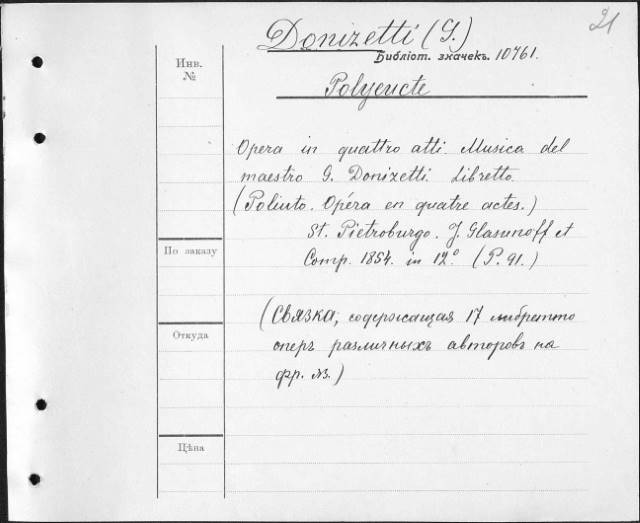 21
Donizetti (G.)
Библіот. значекъ. 10761.
Инв.
№
Polyeucte
Opera in quattro atti. Musica del
maestro G. Donizetti. Libretto.
(Poliuto. Opéra en quatre actes.)
St. Pietroburgo. J. Glasunoff et
Comp. 1854. in 12° (P. 91.)
По заказу
(Связка, содержащая 17 либретто
Откуда
оперъ различныхъ авторовъ на
фр. яз.)
Цѣна